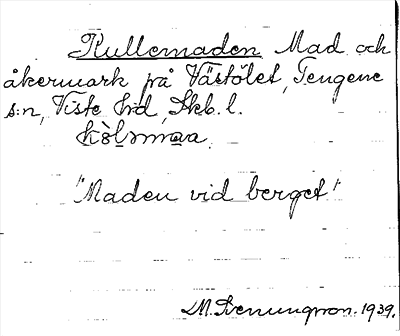 Kullemaden Mad och
åkermark på Västölet, Tengene
s:n, Viste hrd, Skb. l.
"Maden vid berget"
M. Svenungsson. 1939.